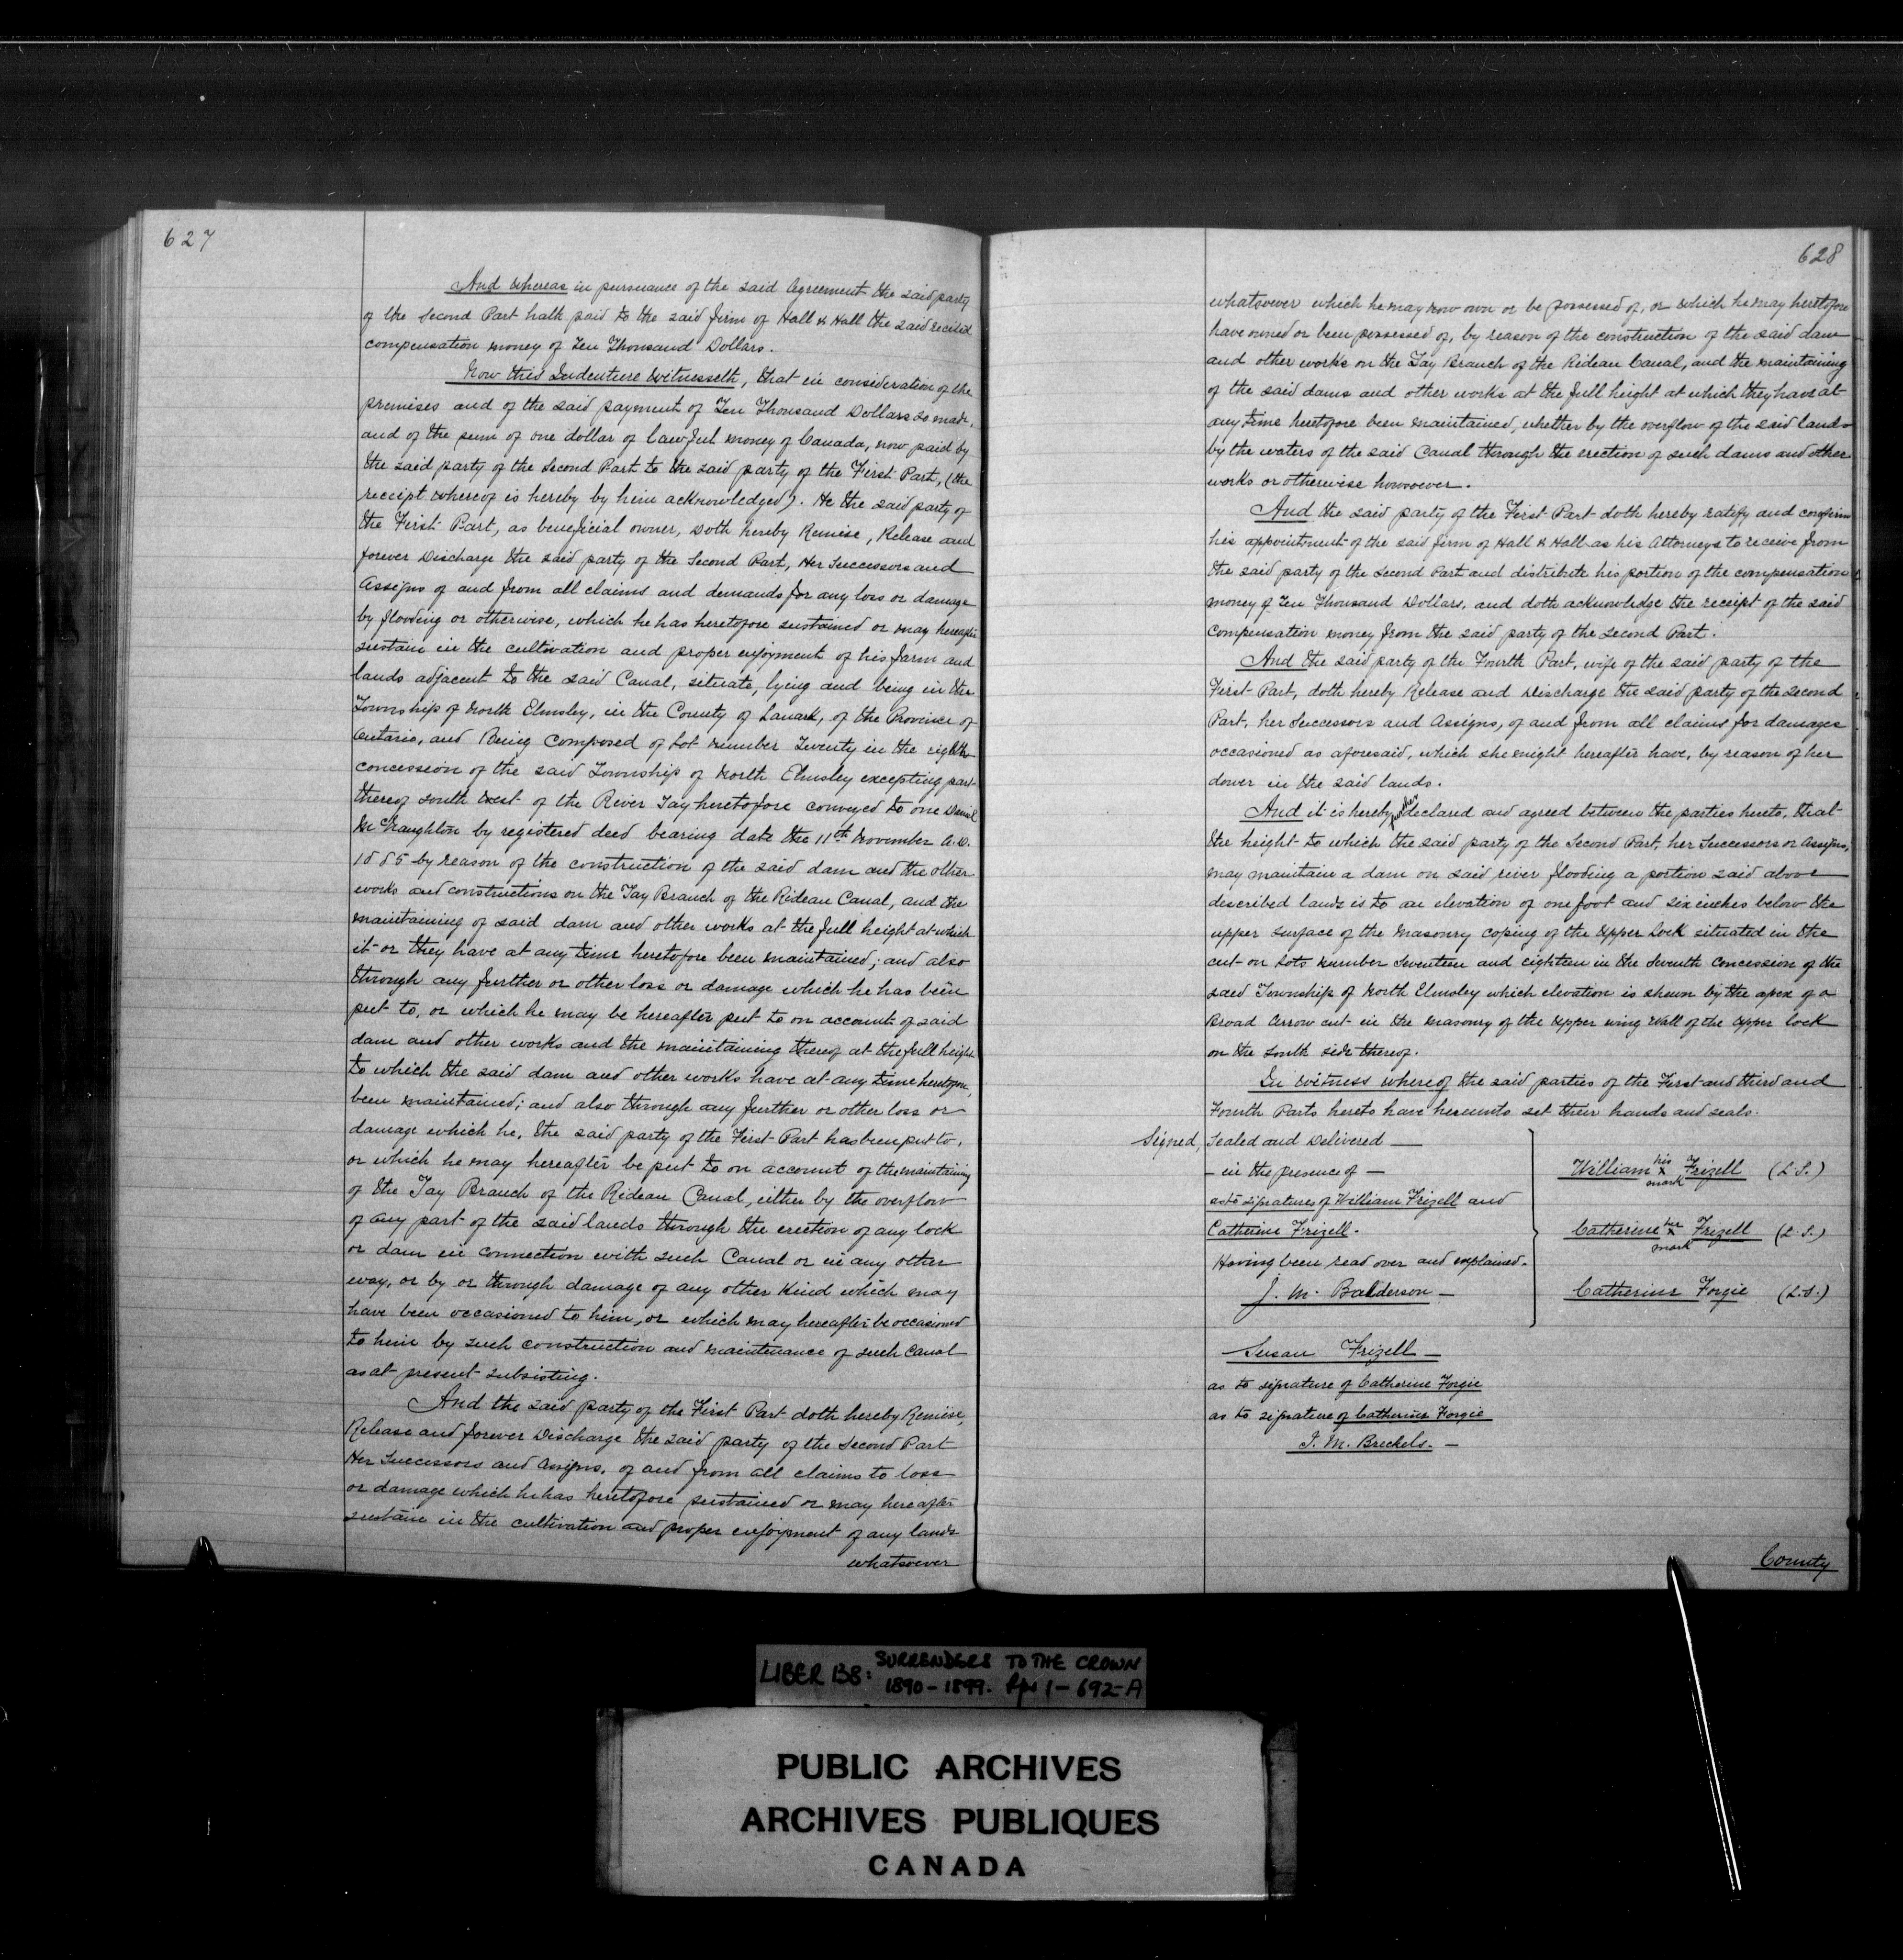 627
And whereas in pursuance of the said Agreement the said party
of the Second Part hath paid to the said firm of Hall & Hall the said recited
compensation money of Ten Thousand Dollars.
Now this Indenture Witnesseth, that in consideration of the
premises and of the said payment of Ten Thousand Dollars so made,
and of the sum of one dollar of lawful money of Canada, now paid by
the said party of the Second Part to the said party of the First Part, (the
receipt whereof is hereby by him acknowledged). He the said party of
the First Part, as beneficial owner, Doth hereby Remise, Release and
forever Discharge the said party of the Second Part, Her Successors and
Assigns of and from all claims and demands for any loss or damage
by flooding or otherwise, which he has heretofore sustained or may hereafter
sustain in the cultivation and proper enjoyment of his farm and
lands adjacent to the said Canal, situate, lying and being in the
Township of North Elmsley, in the County of Lanark, of the Province of
Ontario, and Being Composed of Lot number Twenty in the eighth
concession of the said Township of North Elmsley excepting part
thereof South West of the River Tay heretofore conveyed to one Daniel
McNaughton by registered deed bearing date the 11th November A.D.
1885 by reason of the construction of the said dam and the other
works and constructions on the Tay Branch of the Rideau Canal, and the
maintaining of said dam and other works at the full height at which
it or they have at any time heretofore been maintained; and also
through any further or other loss or damage which he has been
put to, or which he may be hereafter put to on account of said
dam and other works and the maintaining thereof at the full height
to which the said dam and other works have at any time heretofore
been maintained; and also through any further or other loss or
damage which he, the said party of the First Part has been put to,
or which he may hereafter be put to on account of the maintaining
of the Tay Branch of the Rideau Canal, either by the overflow
of any part of the said lands through the erection of any lock
or dam in connection with such Canal or in any other
way, or by or through damage of any other kind which may
have been occasioned to him, or which may hereafter be occasioned
to him by such construction and maintenance of such Canal
as at present subsisting.
And the said party of the First Part doth hereby Remise,
Release and forever Discharge the said party of the Second Part
Her Successors and Assigns, of and from all claims to loss
or damage which he has heretofore sustained or may hereafter
sustain in the cultivation and proper enjoyment of any lands
whatsoever
628
whatsoever which he may now own or be possessed of, or which he may heretofore
have owned or been possessed of, by reason of the construction of the said dam
and other works on the Tay Branch of the Rideau Canal, and the maintaining
of the said dams and other works at the full height at which they have at
any time heretofore been maintained, whether by the overflow of the said lands
by the waters of the said Canal through the erection of such dams and other
works or otherwise howsoever.
And the said party of the First Part doth hereby ratify and confirm
his appointment of the said firm of Hall & Hall as his Attorneys to receive from
the said party of the Second Part and distribute his portion of the compensation
money of Ten Thousand Dollars, and doth acknowledge the receipt of the said
Compensation money from the said party of the Second Part.
And the said party of the Fourth Part, wife of the said party of the
First Part, doth hereby Release and Discharge the said party of the Second
Part, her Successors and Assigns, of and from all claims for damages
occasioned as aforesaid, which she might hereafter have, by reason of her
dower in the said lands.
And it is hereby further declared and agreed between the parties hereto, that
the height to which the said party of the Second Part, her Successors or Assigns,
may maintain a dam on said river flooding a portion said above
described lands is to an elevation of one foot and six inches below the
upper surface of the masonry coping of the Upper Lock situated in the
cut on Lots number Seventeen and eighteen in the Seventh Concession of the
said Township of North Elmsley which elevation is shewn by the apex of a
Broad Arrow cut in the masonry of the Upper wing Wall of the Upper lock
on the South side thereof.
In Witness whereof the said parties of the First and third and
Fourth Parts hereto have hereunto set their hands and seals.
Signed, Sealed and Delivered
– in the presence of –
as to signatures of William Frizell and
Catherine Frizell.
Having been read over and explained.
J. M. Balderson –
William his x mark Frizell (L.S.)
Catherine her x mark Frizell (L.S.)
Catherine Forgie (L.S.)
Susan Frizell –
as to signature of Catherine Forgie
as to signature of Catherine Forgie
J. M. Breckels. –
County
LIBER B8: SURRENDERS TO THE CROWN
1890–1899. Pps 1–692-A
PUBLIC ARCHIVES
ARCHIVES PUBLIQUES
CANADA